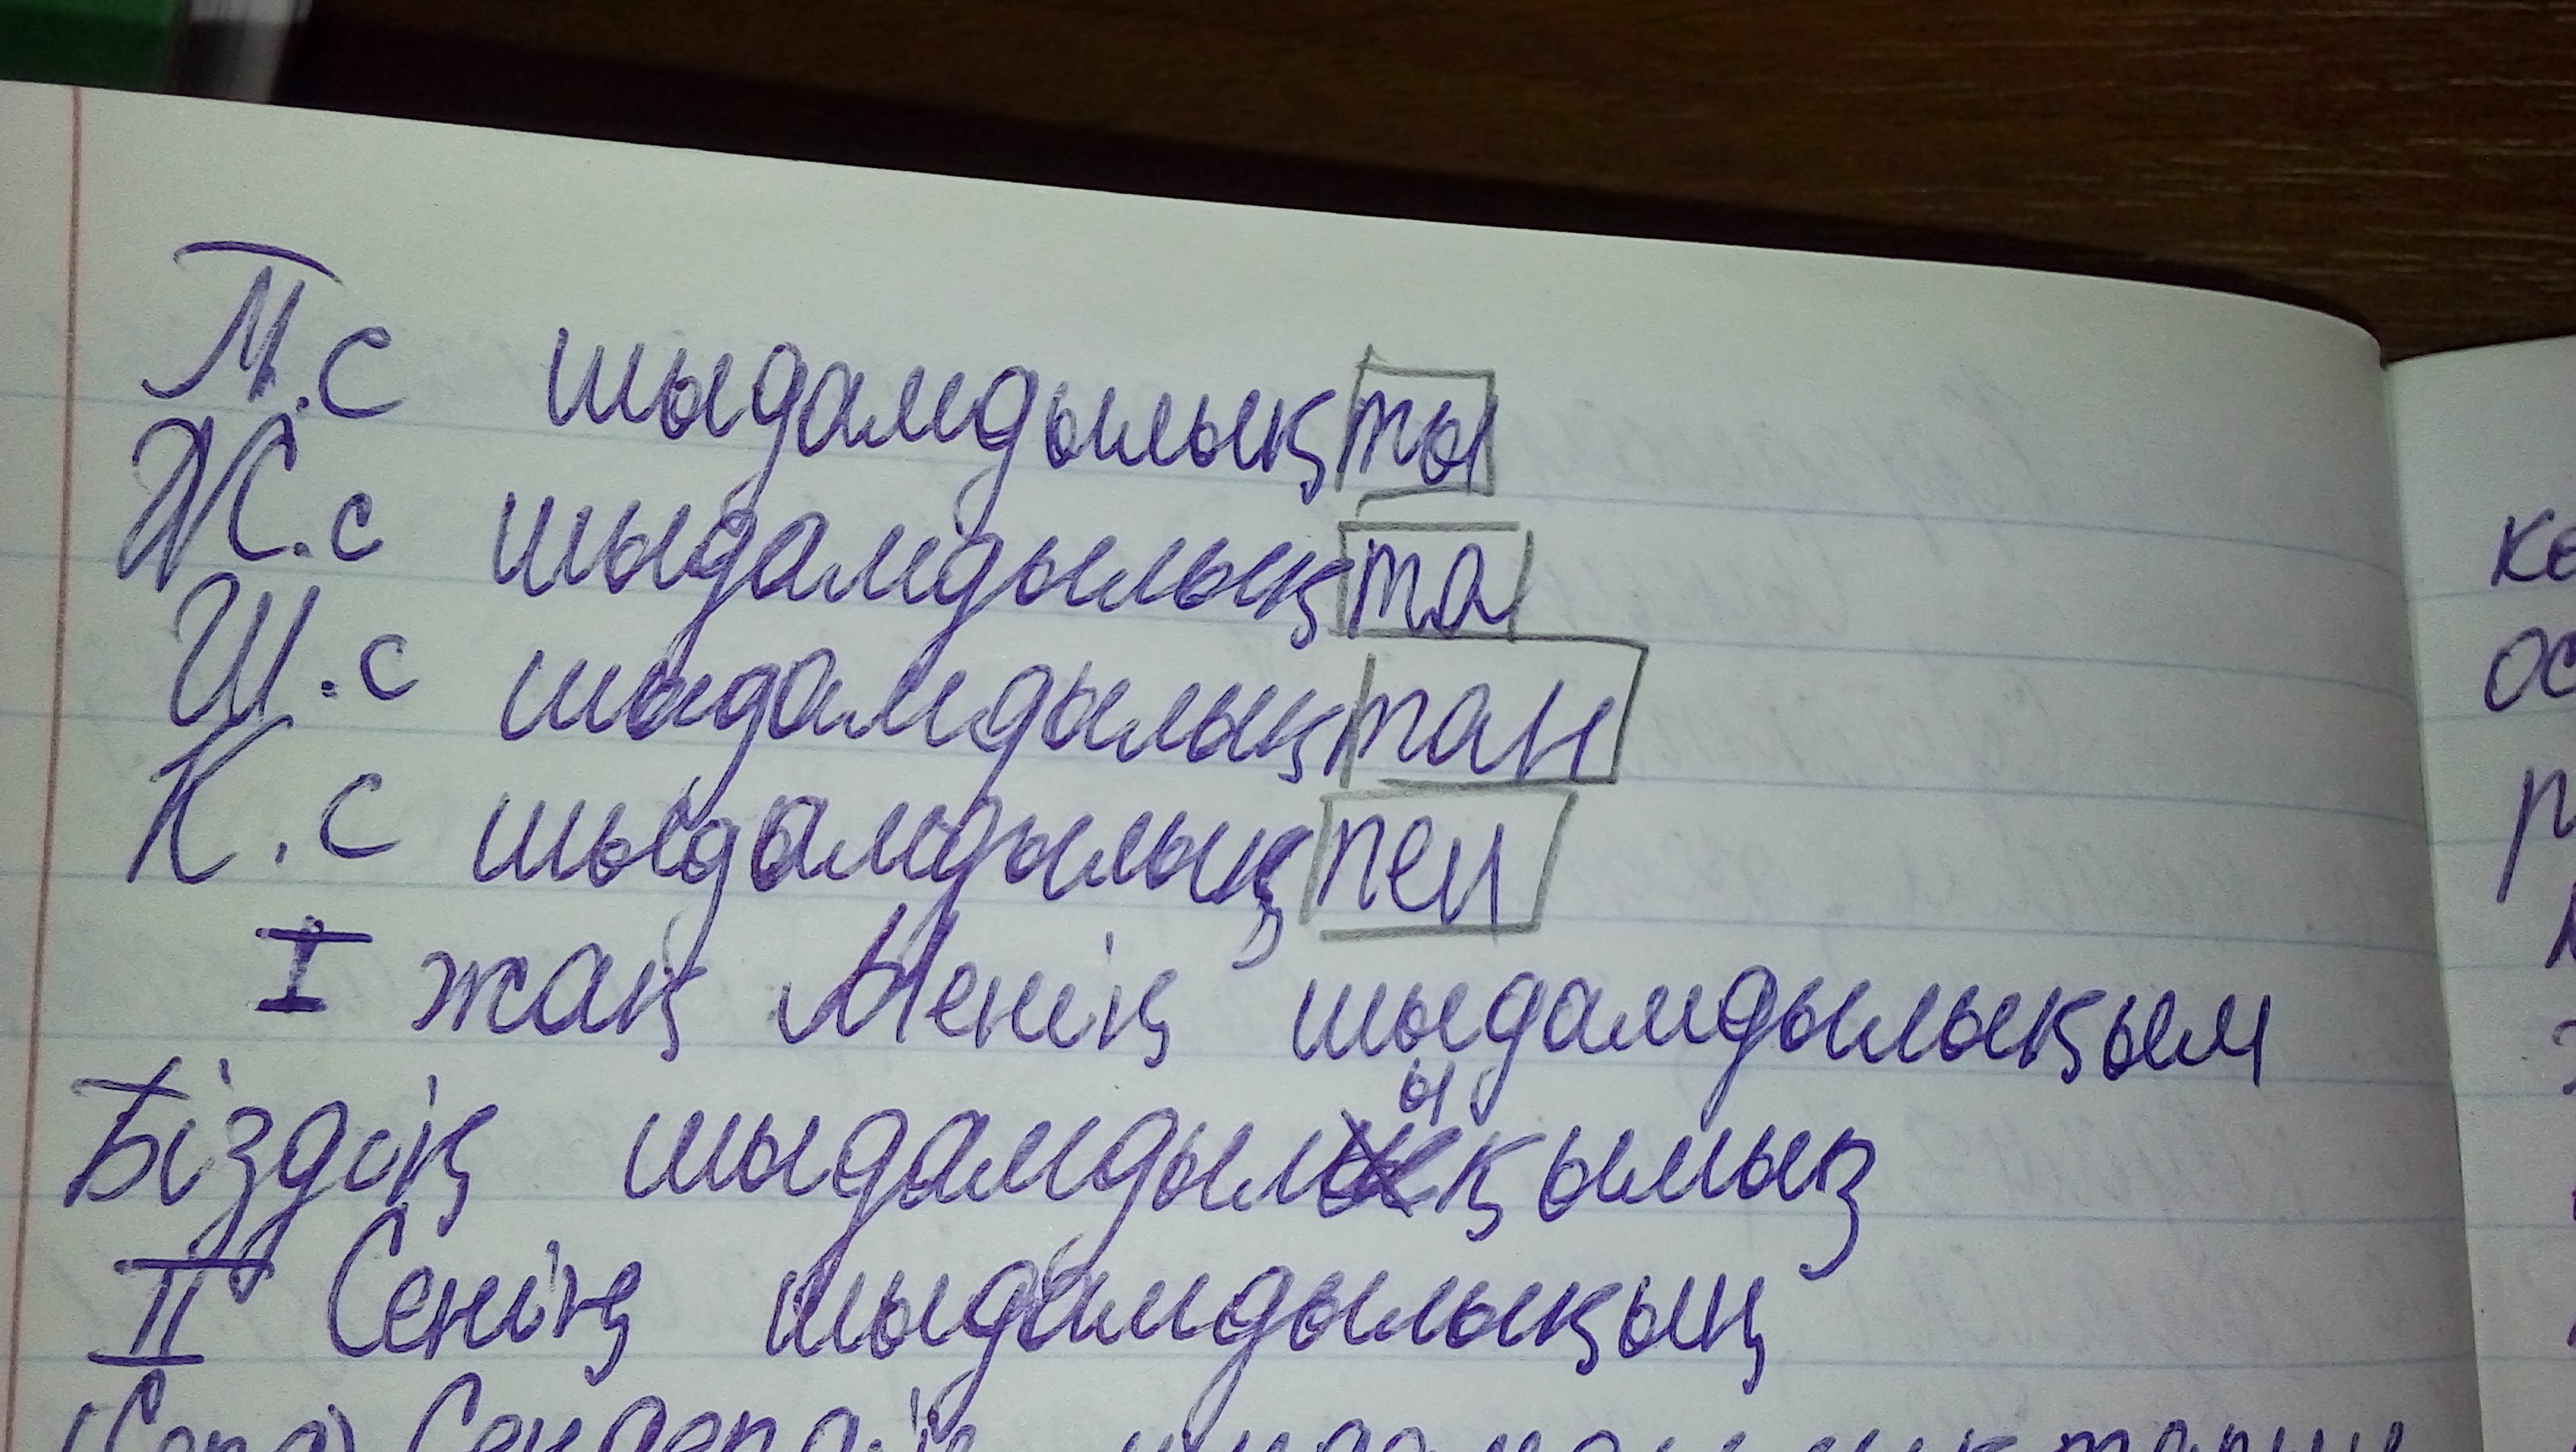 Т.с шыдамдылықты
Ж.с шыдамдылықта
Ш.с шыдамдылықтан
К.с шыдамдылықпен
I жақ Менің шыдамдылықым
Біздің шыдамдылықымыз
II Сенің шыдамдылықың
Сендердің